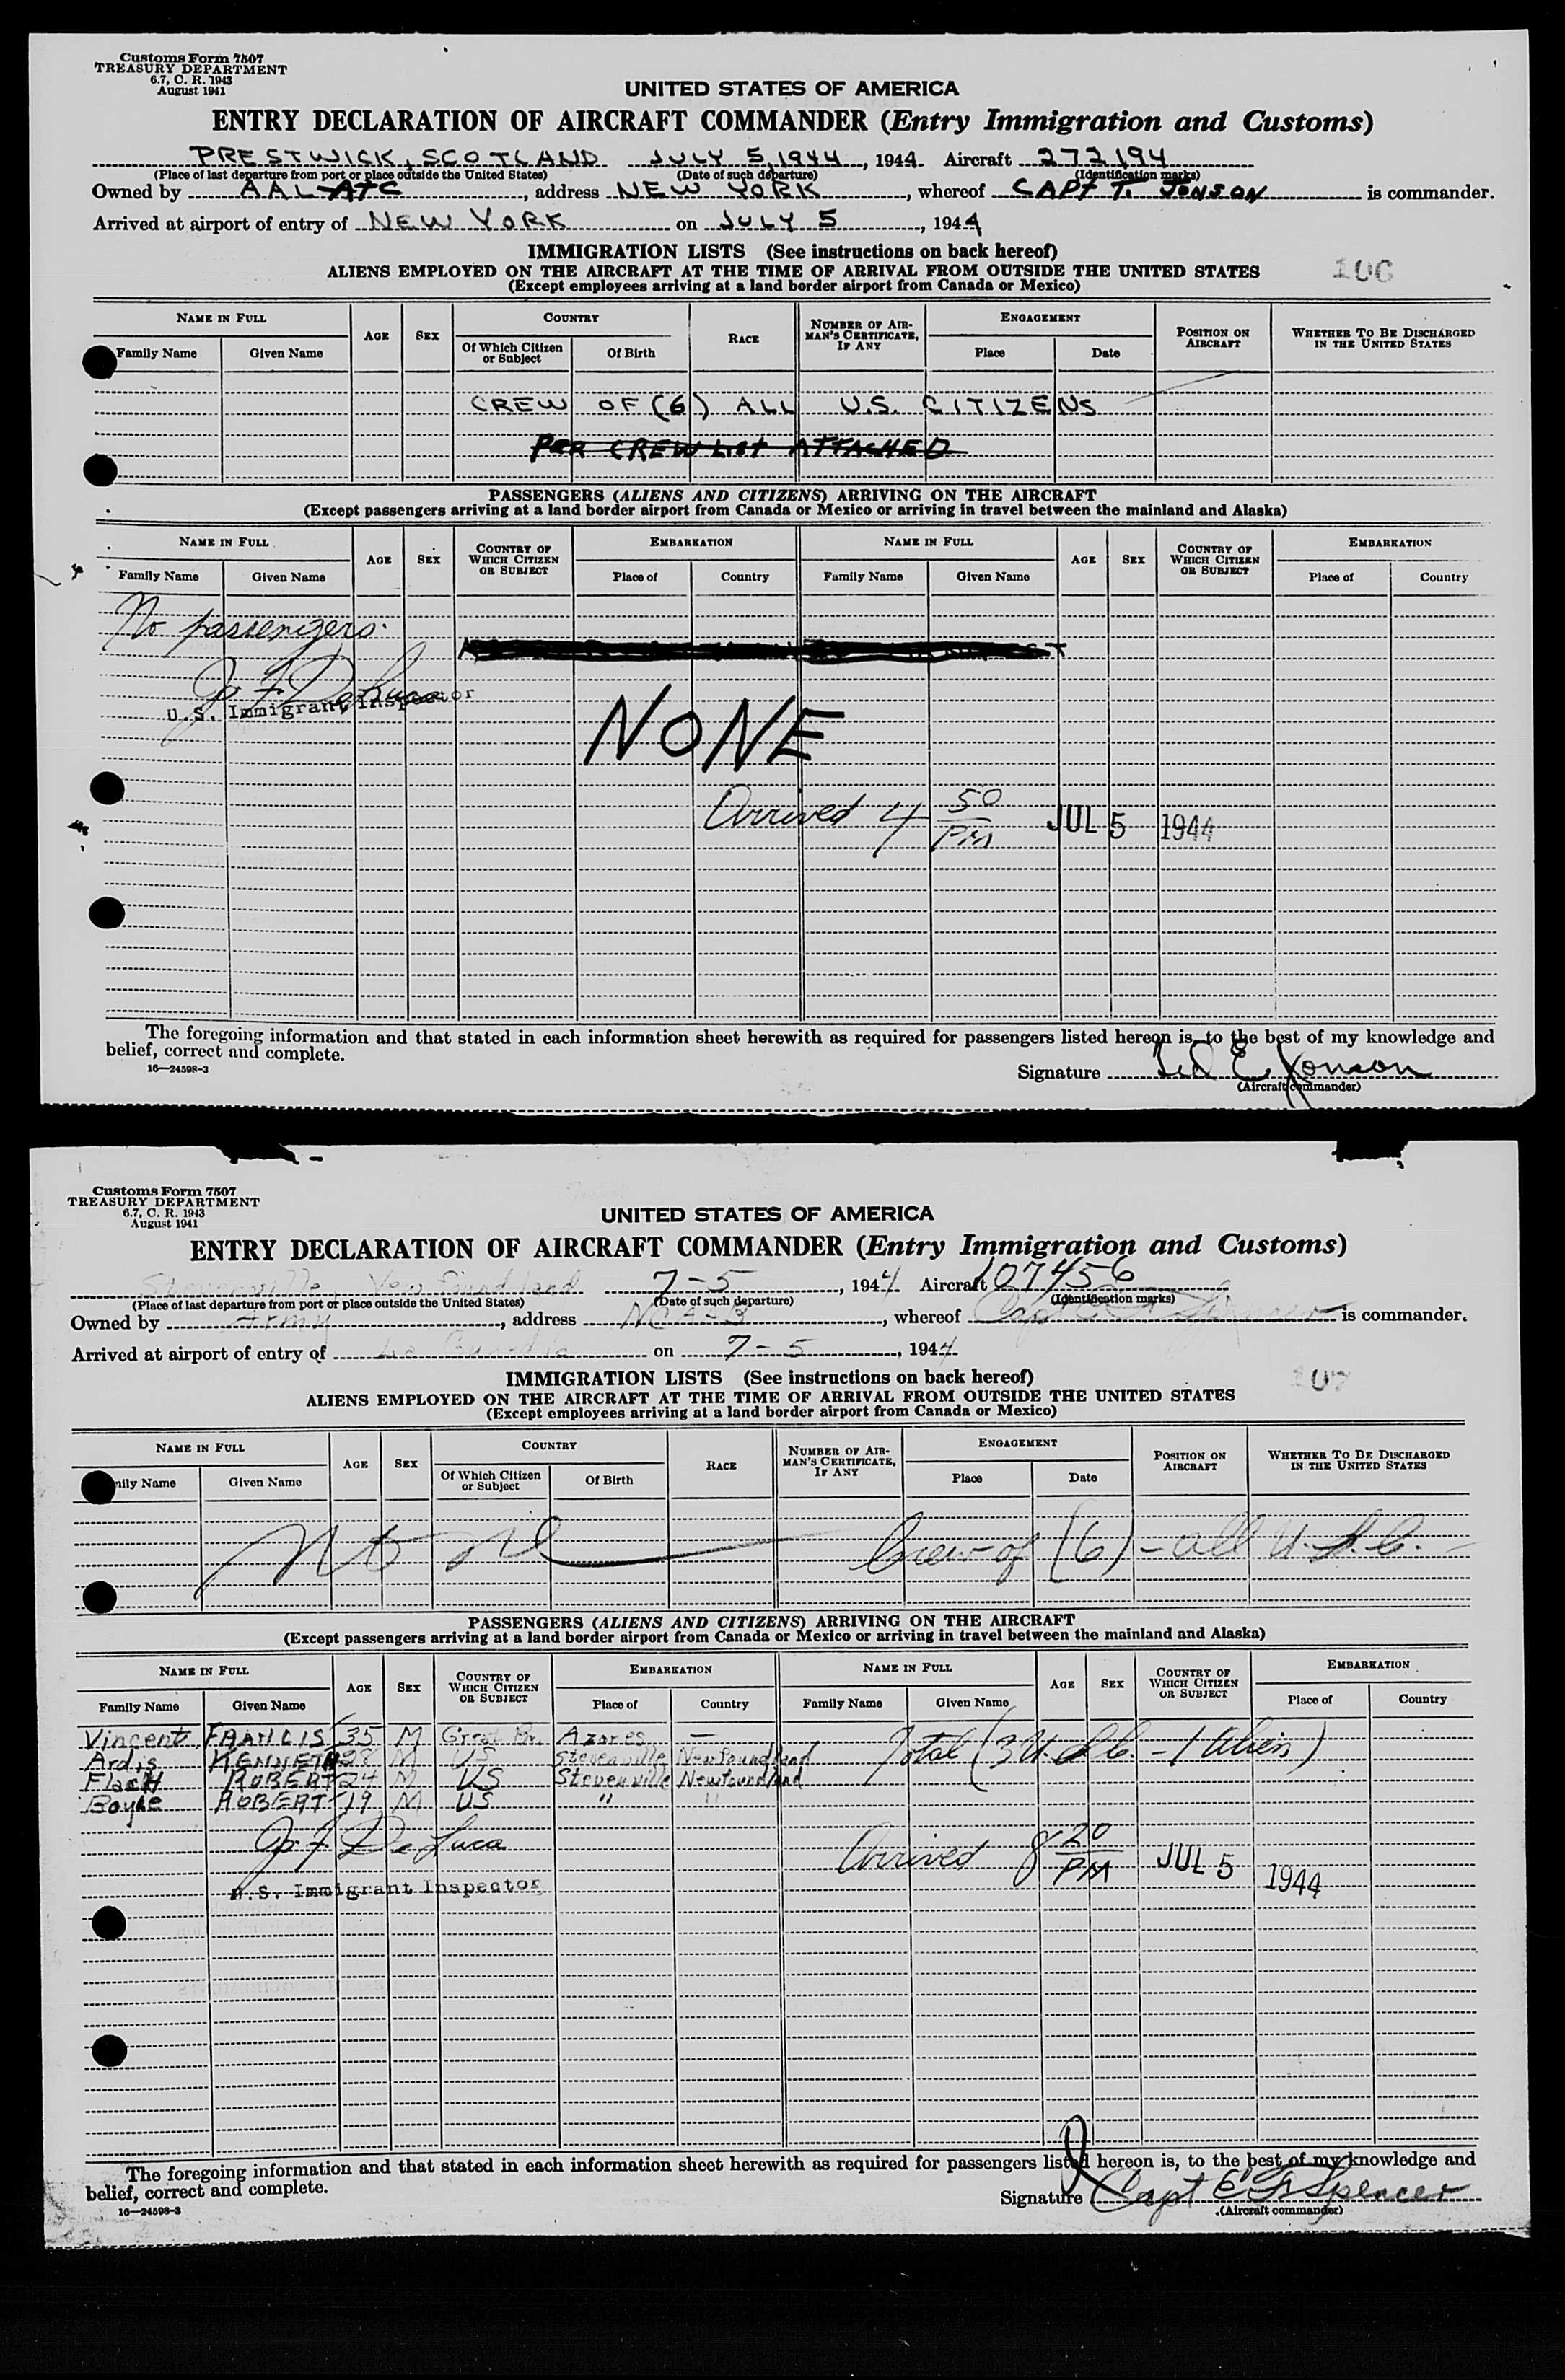 Customs Form 7507
TREASURY DEPARTMENT
6.7, C. R. 1943
August 1941
UNITED STATES OF AMERICA
ENTRY DECLARATION OF AIRCRAFT COMMANDER (Entry Immigration and Customs)
PRESTWICK, SCOTLAND JULY 5, 1944, 1944 Aircraft 272194
(Place of last departure from port or place outside the United States) (Date of such departure) (Identification marks)
Owned by AAL-ATC, address NEW YORK, whereof CAPT T. JONSON is commander.
Arrived at airport of entry of NEW YORK on JULY 5, 1944
IMMIGRATION LISTS (See instructions on back hereof)
ALIENS EMPLOYED ON THE AIRCRAFT AT THE TIME OF ARRIVAL FROM OUTSIDE THE UNITED STATES
(Except employees arriving at a land border airport from Canada or Mexico)
106
NAME IN FULL AGE SEX COUNTRY RACE NUMBER OF AIRMAN'S CERTIFICATE, IF ANY ENGAGEMENT POSITION ON AIRCRAFT WHETHER TO BE DISCHARGED IN THE UNITED STATES
Family Name Given Name Of Which Citizen or Subject Of Birth Place Date
CREW OF (6) ALL U.S. CITIZENS
PER CREW LIST ATTACHED
PASSENGERS (ALIENS AND CITIZENS) ARRIVING ON THE AIRCRAFT
(Except passengers arriving at a land border airport from Canada or Mexico or arriving in travel between the mainland and Alaska)
NAME IN FULL AGE SEX COUNTRY OF WHICH CITIZEN OR SUBJECT EMBARKATION NAME IN FULL AGE SEX COUNTRY OF WHICH CITIZEN OR SUBJECT EMBARKATION
Family Name Given Name Place of Country Family Name Given Name Place of Country
No passengers.
Jo F DeLuca
U.S. Immigrant Inspector
NONE
Arrived 4 50 PM JUL 5 1944
The foregoing information and that stated in each information sheet herewith as required for passengers listed hereon is, to the best of my knowledge and
belief, correct and complete.
16—24598-3
Signature Ted E Jonson
(Aircraft commander)
Customs Form 7507
TREASURY DEPARTMENT
6.7, C. R. 1943
August 1941
UNITED STATES OF AMERICA
ENTRY DECLARATION OF AIRCRAFT COMMANDER (Entry Immigration and Customs)
Stevenville, Newfoundland 7-5, 1944 Aircraft 107456
(Place of last departure from port or place outside the United States) (Date of such departure) (Identification marks)
Owned by Army, address, whereof Capt Spencer is commander.
Arrived at airport of entry of La Guardia on 7-5, 1944
IMMIGRATION LISTS (See instructions on back hereof)
ALIENS EMPLOYED ON THE AIRCRAFT AT THE TIME OF ARRIVAL FROM OUTSIDE THE UNITED STATES
(Except employees arriving at a land border airport from Canada or Mexico)
107
NAME IN FULL AGE SEX COUNTRY RACE NUMBER OF AIRMAN'S CERTIFICATE, IF ANY ENGAGEMENT POSITION ON AIRCRAFT WHETHER TO BE DISCHARGED IN THE UNITED STATES
Family Name Given Name Of Which Citizen or Subject Of Birth Place Date
Crew of (6) - all U.S.C.
PASSENGERS (ALIENS AND CITIZENS) ARRIVING ON THE AIRCRAFT
(Except passengers arriving at a land border airport from Canada or Mexico or arriving in travel between the mainland and Alaska)
NAME IN FULL AGE SEX COUNTRY OF WHICH CITIZEN OR SUBJECT EMBARKATION NAME IN FULL AGE SEX COUNTRY OF WHICH CITIZEN OR SUBJECT EMBARKATION
Family Name Given Name Place of Country Family Name Given Name Place of Country
Vincent FRANCIS 35 M Great Br. Azores —
Ardis KENNETH 28 M US Stevenville Newfoundland
Total (3 U.S.C. - 1 Alien)
Flach ROBERT 24 M US Stevenville Newfoundland
Boyle ROBERT 19 M US " "
Jo F DeLuca
U.S. Immigrant Inspector
Arrived 8 20 PM JUL 5 1944
The foregoing information and that stated in each information sheet herewith as required for passengers listed hereon is, to the best of my knowledge and
belief, correct and complete.
16—24598-3
Signature Capt E F Spencer
(Aircraft commander)